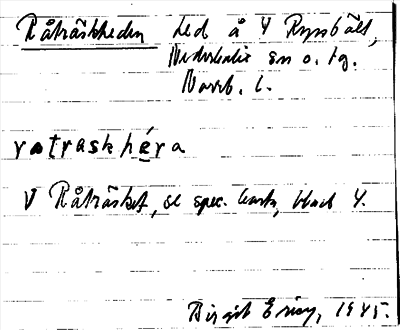 Råträskheden hed å Y Rynbält,
Nederkalix sn o. tg.
Norrb. l.
rotraskhéra
V Råträsket, se spec. karta, blad 4.
Birgit Ericy, 1945.